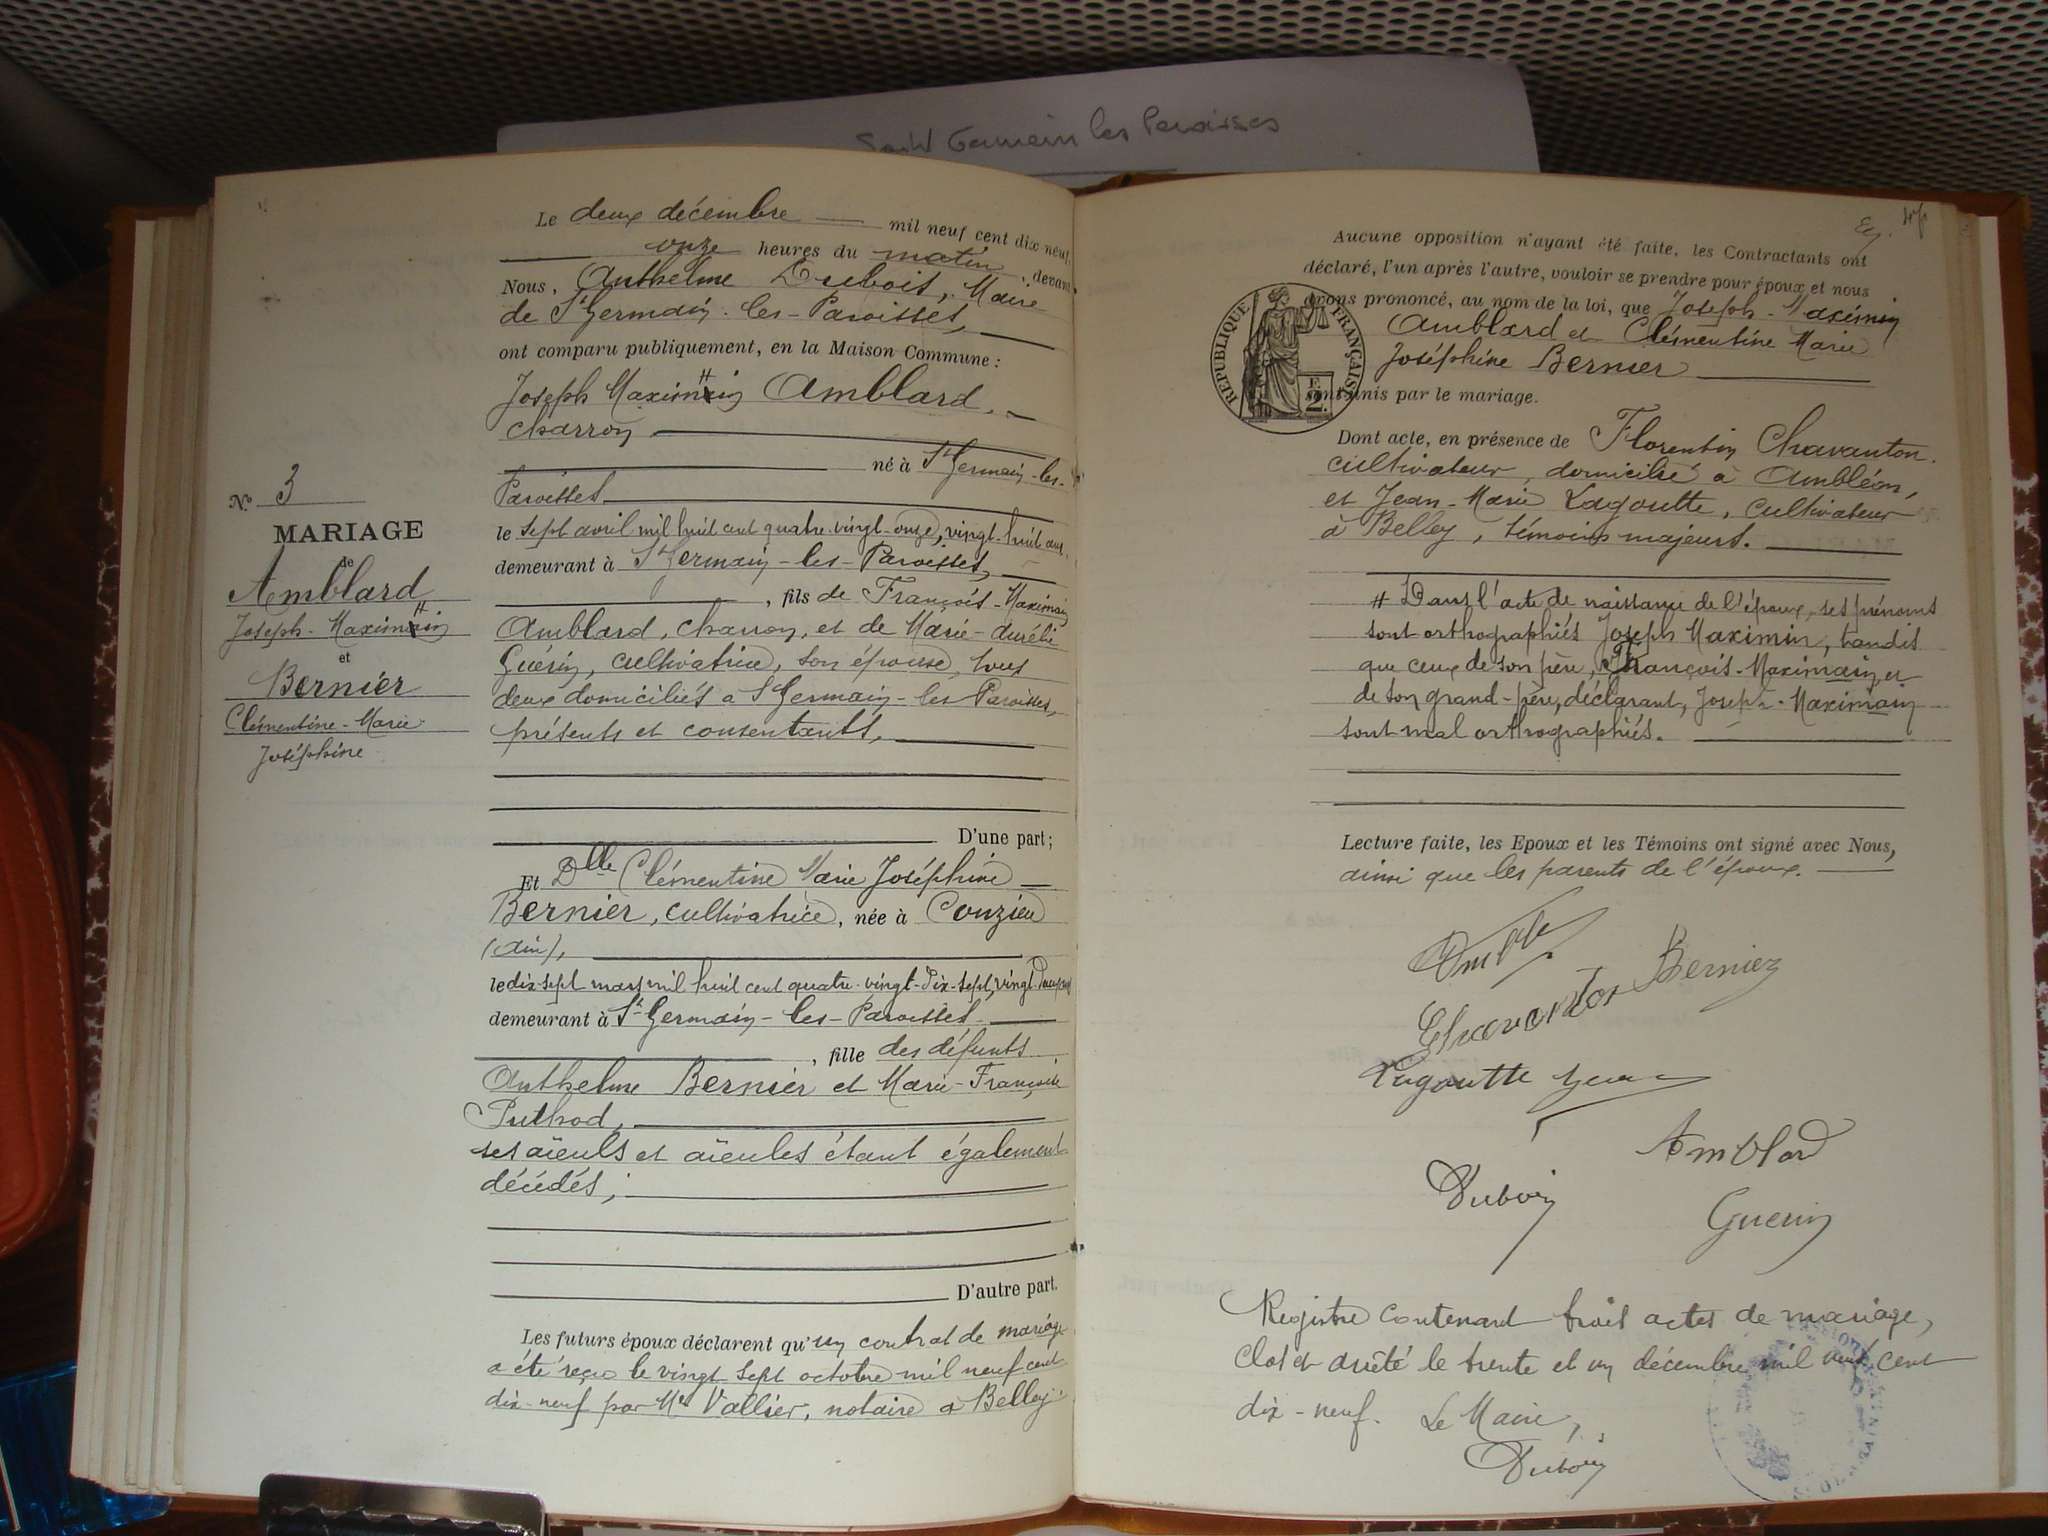 Saint Germain les Paroisses
Le deux décembre mil neuf cent dix neuf,
onze heures du matin, devant
Nous, Anthelme Dubois, Maire
de St Germain-les-Paroisses,
ont comparu publiquement, en la Maison Commune :
Joseph Maximain # Amblard,
charron
né à St Germain-les-
Paroisses
le sept avril mil huit cent quatre-vingt-onze, vingt-huit ans,
demeurant à St Germain-les-Paroisses,
, fils de François-Maximain
Amblard, charron, et de Marie-Aurélie
Guérin, cultivatrice, son épouse, tous
deux domiciliés à St Germain-les-Paroisses,
présents et consentants,
D'une part;
Et Dlle Clémentine Marie Joséphine
Bernier, cultivatrice, née à Conzieu
(Ain),
le dix-sept mars mil huit cent quatre-vingt-dix-sept, vingt-deux ans
demeurant à St Germain-les-Paroisses
, fille des défunts
Anthelme Bernier et Marie-Françoise
Puthod,
ses aïeuls et aïeules étant également
décédés;
D'autre part.
Les futurs époux déclarent qu'un contrat de mariage
a été reçu le vingt sept octobre mil neuf cent
dix-neuf par Me Vallier, notaire à Belley.
No 3
MARIAGE
de
Amblard
Joseph-Maximain #
et
Bernier
Clémentine-Marie
Joséphine
Aucune opposition n'ayant été faite, les Contractants ont
déclaré, l'un après l'autre, vouloir se prendre pour époux et nous
avons prononcé, au nom de la loi, que Joseph-Maximin
Amblard et Clémentine Marie
Joséphine Bernier
sont unis par le mariage.
REPUBLIQUE FRANÇAISE
F.
2.
Dont acte, en présence de Florentin Chavanton
cultivateur, domicilié à Ambléon,
et Jean-Marie Lagoutte, cultivateur
à Belley, témoins majeurs.
# Dans l'acte de naissance de l'époux, ses prénoms
sont orthographiés Joseph Maximin, tandis
que ceux de son père, François-Maximain, et
de son grand-père, déclarant, Joseph-Maximain
sont mal orthographiés.
Lecture faite, les Epoux et les Témoins ont signé avec Nous,
ainsi que les parents de l'époux.
Bernier
Chavanton
Lagoutte Jean
Amblard
Dubois
Guerin
Registre contenant trois actes de mariage,
clos et arrêté le trente et un décembre mil neuf cent
dix-neuf. Le Maire,
Dubois